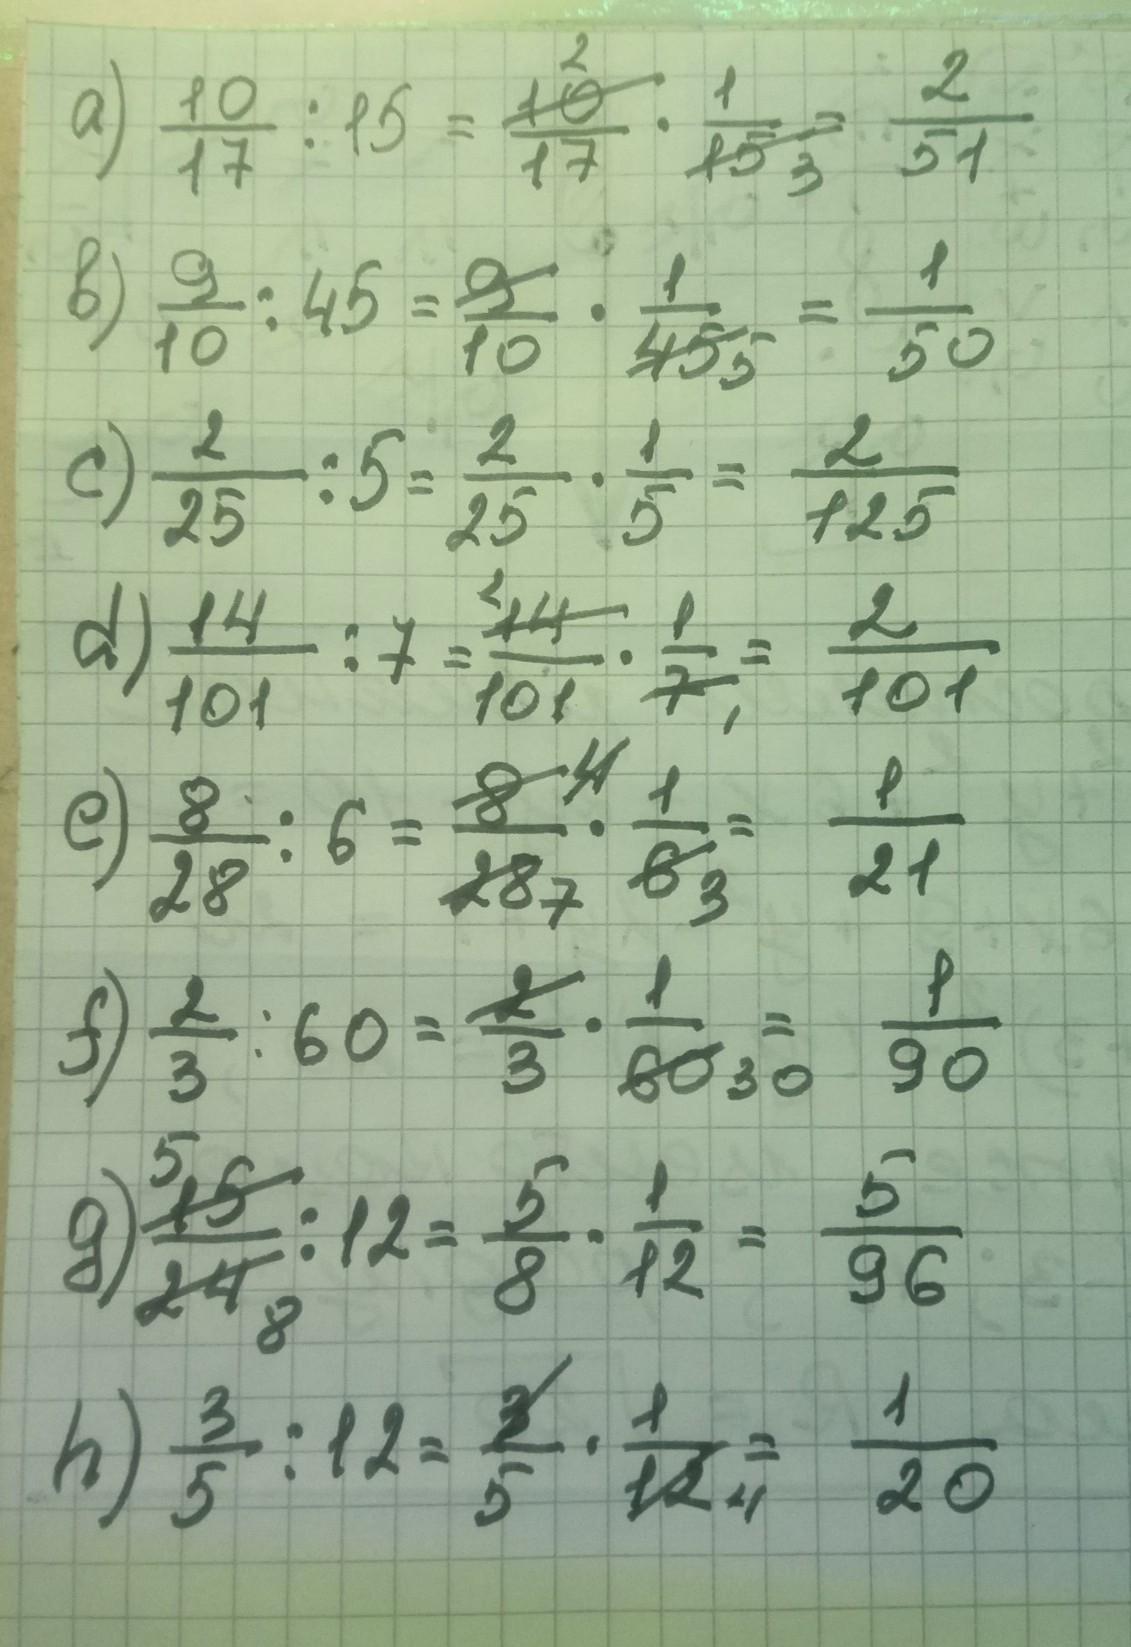 a) 10/17 : 15 = 10/17 2 · 1/15 3 = 2/51
b) 9/10 : 45 = 9/10 · 1/45 5 = 1/50
c) 2/25 : 5 = 2/25 · 1/5 = 2/125
d) 14/101 : 7 = 2 14/101 · 1/7 1 = 2/101
e) 8/28 : 6 = 8 4/28 7 · 1/6 3 = 1/21
f) 2/3 : 60 = 2/3 · 1/60 30 = 1/90
g) 5 15/24 8 : 12 = 5/8 · 1/12 = 5/96
h) 3/5 : 12 = 3/5 · 1/12 4 = 1/20